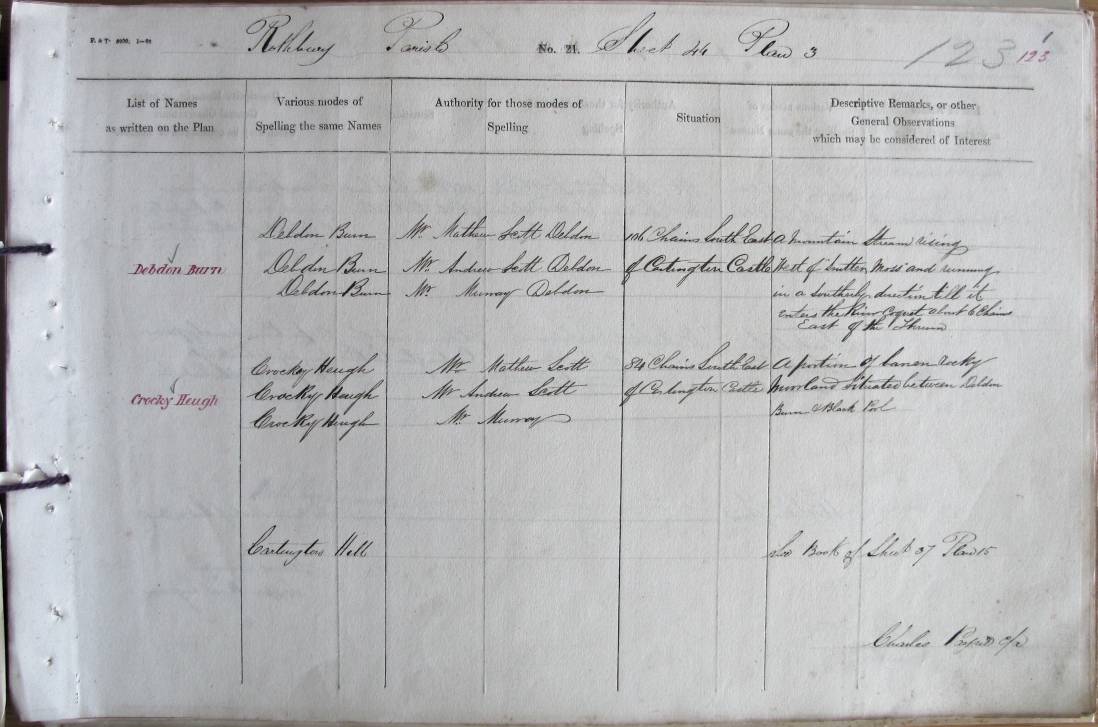 Rothbury Parish No. 21. Sheet 46 Plan 3
123
123
List of Names
as written on the Plan
Various modes of
Spelling the same Names
Authority for those modes of
Spelling
Situation
Descriptive Remarks, or other
General Observations
which may be considered of Interest
Debdon Burn
Debdon Burn
Debdon Burn
Debdon Burn
Mr. Mathew Scott Debdon
Mr. Andrew Scott Debdon
Mr. Murray Debdon
106 Chains South East
of Cartington Castle
A Mountain Stream rising
West of Snitter Moss and running
in a southerly direction till it
enters the River Coquet about 6 Chains
East of the Thrum
Crocky Heugh
Crocky Heugh
Crocky Heugh
Crocky Heugh
Mr. Mathew Scott
Mr. Andrew Scott
Mr. Murray
84 Chains South East
of Cartington Castle
A portion of barren rocky
Moorland situated between Debdon
Burn & Black Pool
Cartington Hill
See Book of Sheet 37 Plan 15
Charles